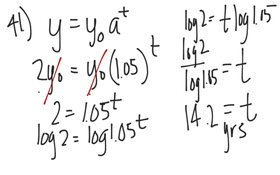 41) y = y₀ aᵗ
2y₀ = y₀ (1.05)ᵗ
2 = 1.05ᵗ
log2 = log1.05ᵗ
log2 = t log1.05
log2 / log1.05 = t
14.2 = t
yrs